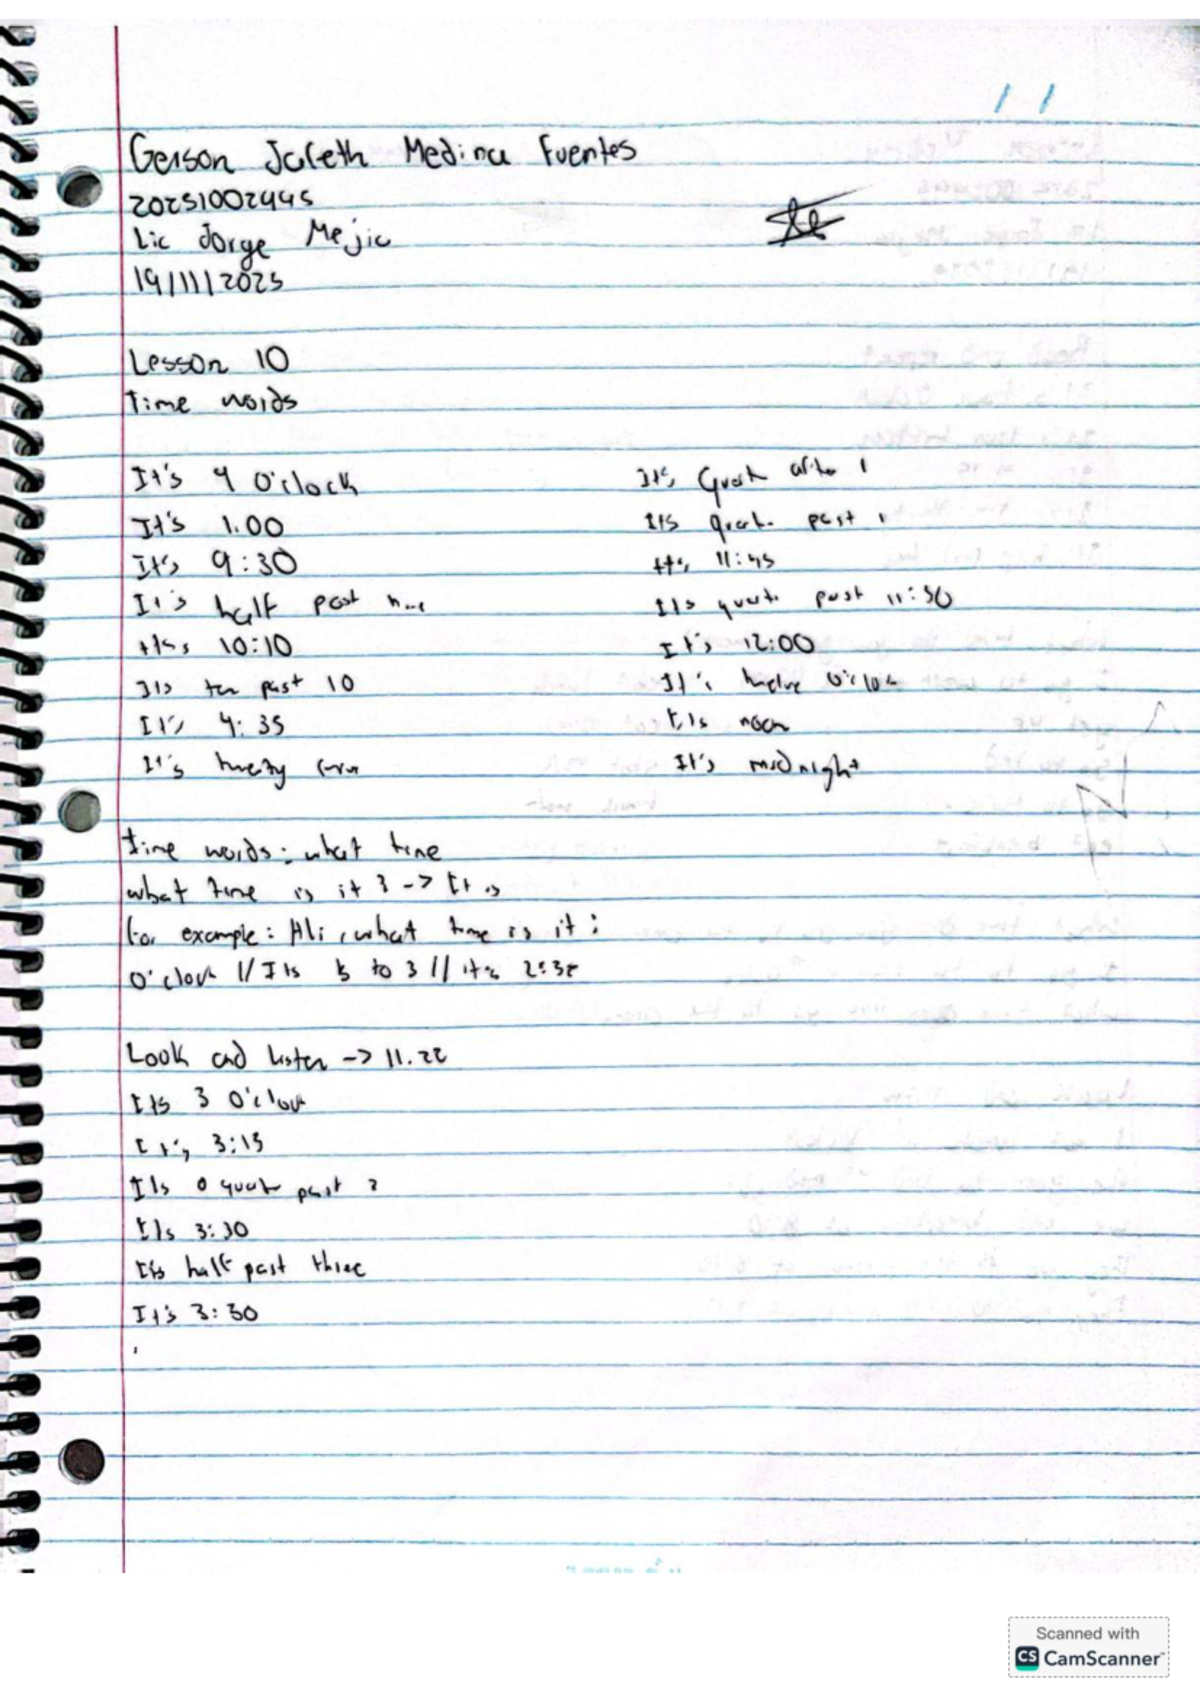 Gerson Jafeth Medina Fuentes
20251002445
Lic Jorge Mejia
19/11/2025
Lesson 10
Time words
It's 4 O'clock
It's 1.00
It's 9:30
It's half past
It's 10:10
It's ten past 10
It's 4:35
It's
It's after 1
It's past 1
It's 11:45
It's past 11:30
It's 12:00
It's twelve
It's noon
It's midnight
Time words: what time
what time is it ? -> It is
For example: Ali, what time is it:
O'clock // Its 5 to 3 // it's
Look and listen -> 11.22
Its 3 O'clock
It's 3:15
Its a past
Its 3:30
It's half past three
It's 3:30
Scanned with
CS CamScanner